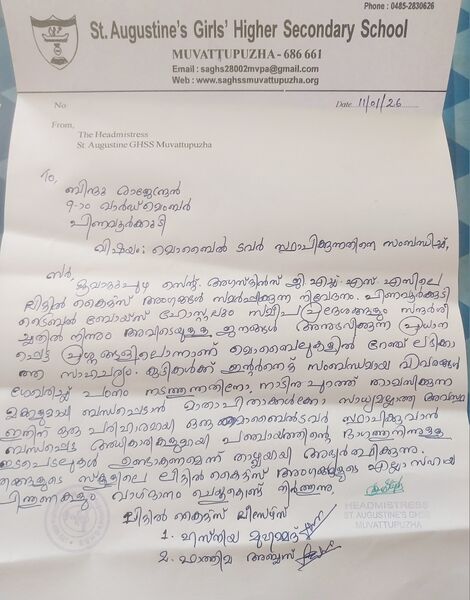 Phone : 0485-2830626
St. Augustine's Girls' Higher Secondary School
MUVATTUPUZHA - 686 661
Email : saghs28002mvpa@gmail.com
Web : www.saghssmuvattupuzha.org
No
Date 11/01/26
From,
The Headmistress
St. Augustine GHSS Muvattupuzha
To,
ബിന്ദു രാജേന്ദ്രൻ
9-ാം വാർഡ് മെമ്പർ
പിണവൂർക്കുടി
വിഷയം: മൊബൈൽ ടവർ സ്ഥാപിക്കുന്നതിനെ സംബന്ധിച്ച്,
സർ,
മൂവാറ്റുപുഴ സെന്റ്. അഗസ്റ്റിൻസ് ജി എച്ച് എസ് എസിലെ
ലിറ്റിൽ കൈറ്റ്സ് അംഗങ്ങൾ സമർപ്പിക്കുന്ന നിവേദനം. പിണവൂർക്കുടി
ട്രൈബൽ ബോയ്സ് ഹോസ്റ്റലും സമീപ പ്രദേശങ്ങളും സന്ദർശി
ച്ചതിൽ നിന്നും അവിടെയുള്ള ജനങ്ങൾ അനുഭവിക്കുന്ന പ്രധാന
പ്പെട്ട പ്രശ്നങ്ങളിലൊന്നാണ് മൊബൈലുകളിൽ റേഞ്ച് ലഭിക്കാ
ത്ത സാഹചര്യം. കുട്ടികൾക്ക് ഇന്റർനെറ്റ് സംബന്ധമായ വിവരങ്ങൾ
ശേഖരിച്ച് പഠനം നടത്തുന്നതിനോ, നാട്ടിൻ പുറത്ത് താമസിക്കുന്ന
മക്കളുമായി ബന്ധപ്പെടാൻ മാതാപിതാക്കൾക്കോ സാധ്യമല്ലാത്ത അവസ്ഥ
ഇതിന് ഒരു പരിഹാരമായി ഒരു മൊബൈൽ ടവർ സ്ഥാപിക്കുവാൻ
ബന്ധപ്പെട്ട അധികാരികളുമായി പഞ്ചായത്തിന്റെ ഭാഗത്തുനിന്നുള്ള
ഇടപെടലുകൾ ഉണ്ടാകണമെന്ന് താഴ്മയായി അഭ്യർത്ഥിക്കുന്നു.
ഞങ്ങളുടെ സ്കൂളിലെ ലിറ്റിൽ കൈറ്റ്സ് അംഗങ്ങളുടെ എല്ലാ സഹായ
പിന്തുണകളും വാഗ്ദാനം ചെയ്തുകൊണ്ട് നിർത്തുന്നു,
ലിറ്റിൽ കൈറ്റ്സ് ലീഡേഴ്സ്
HEADMISTRESS
ST. AUGUSTINE'S GHSS
MUVATTUPUZHA
1. ഹിസ്നിയ മുഹമ്മദ്
2. ഫാത്തിമ അബ്ബാസ്